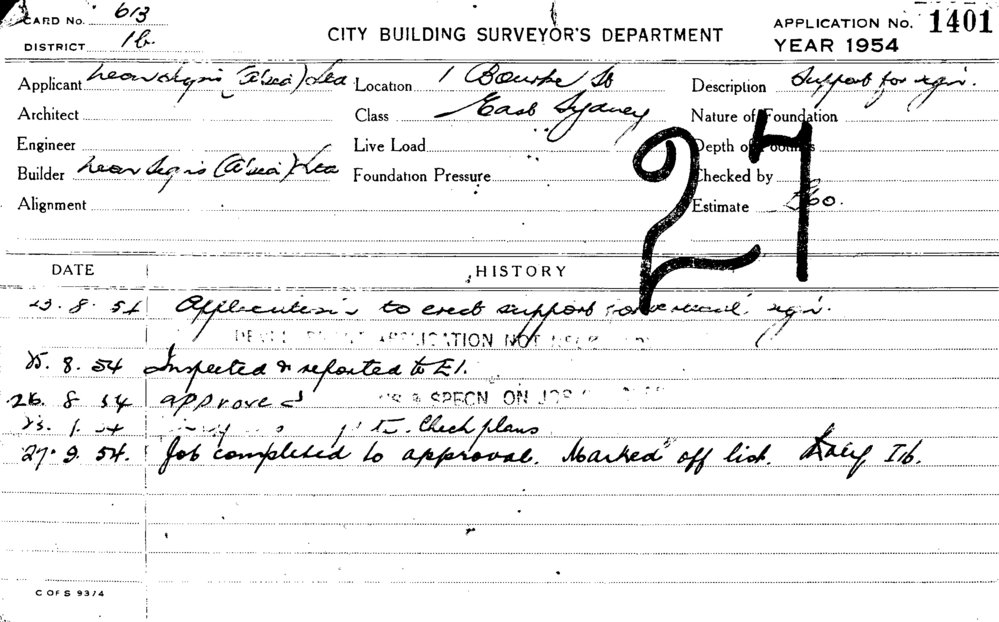 CARD No. 613
DISTRICT 1b.
CITY BUILDING SURVEYOR'S DEPARTMENT
APPLICATION No. 1401
YEAR 1954
Applicant Neon Signs (A'sia) Location 1 Bourke St Description Support for sign.
Architect Class East Sydney Nature of Foundation
Engineer Live Load Depth of
Builder Neon Signs (A'sia) Foundation Pressure Checked by
Alignment Estimate £60.
27
DATE HISTORY
23. 8. 54 Application to erect support for sign.
APPLICATION NOT
25. 8. 54 Inspected & reported to E1.
26. 8 54 approved & SPECN ON JOB
Check plans
27. 9. 54. Job completed to approval. Marked off list. 1b.
C OF S 93/4